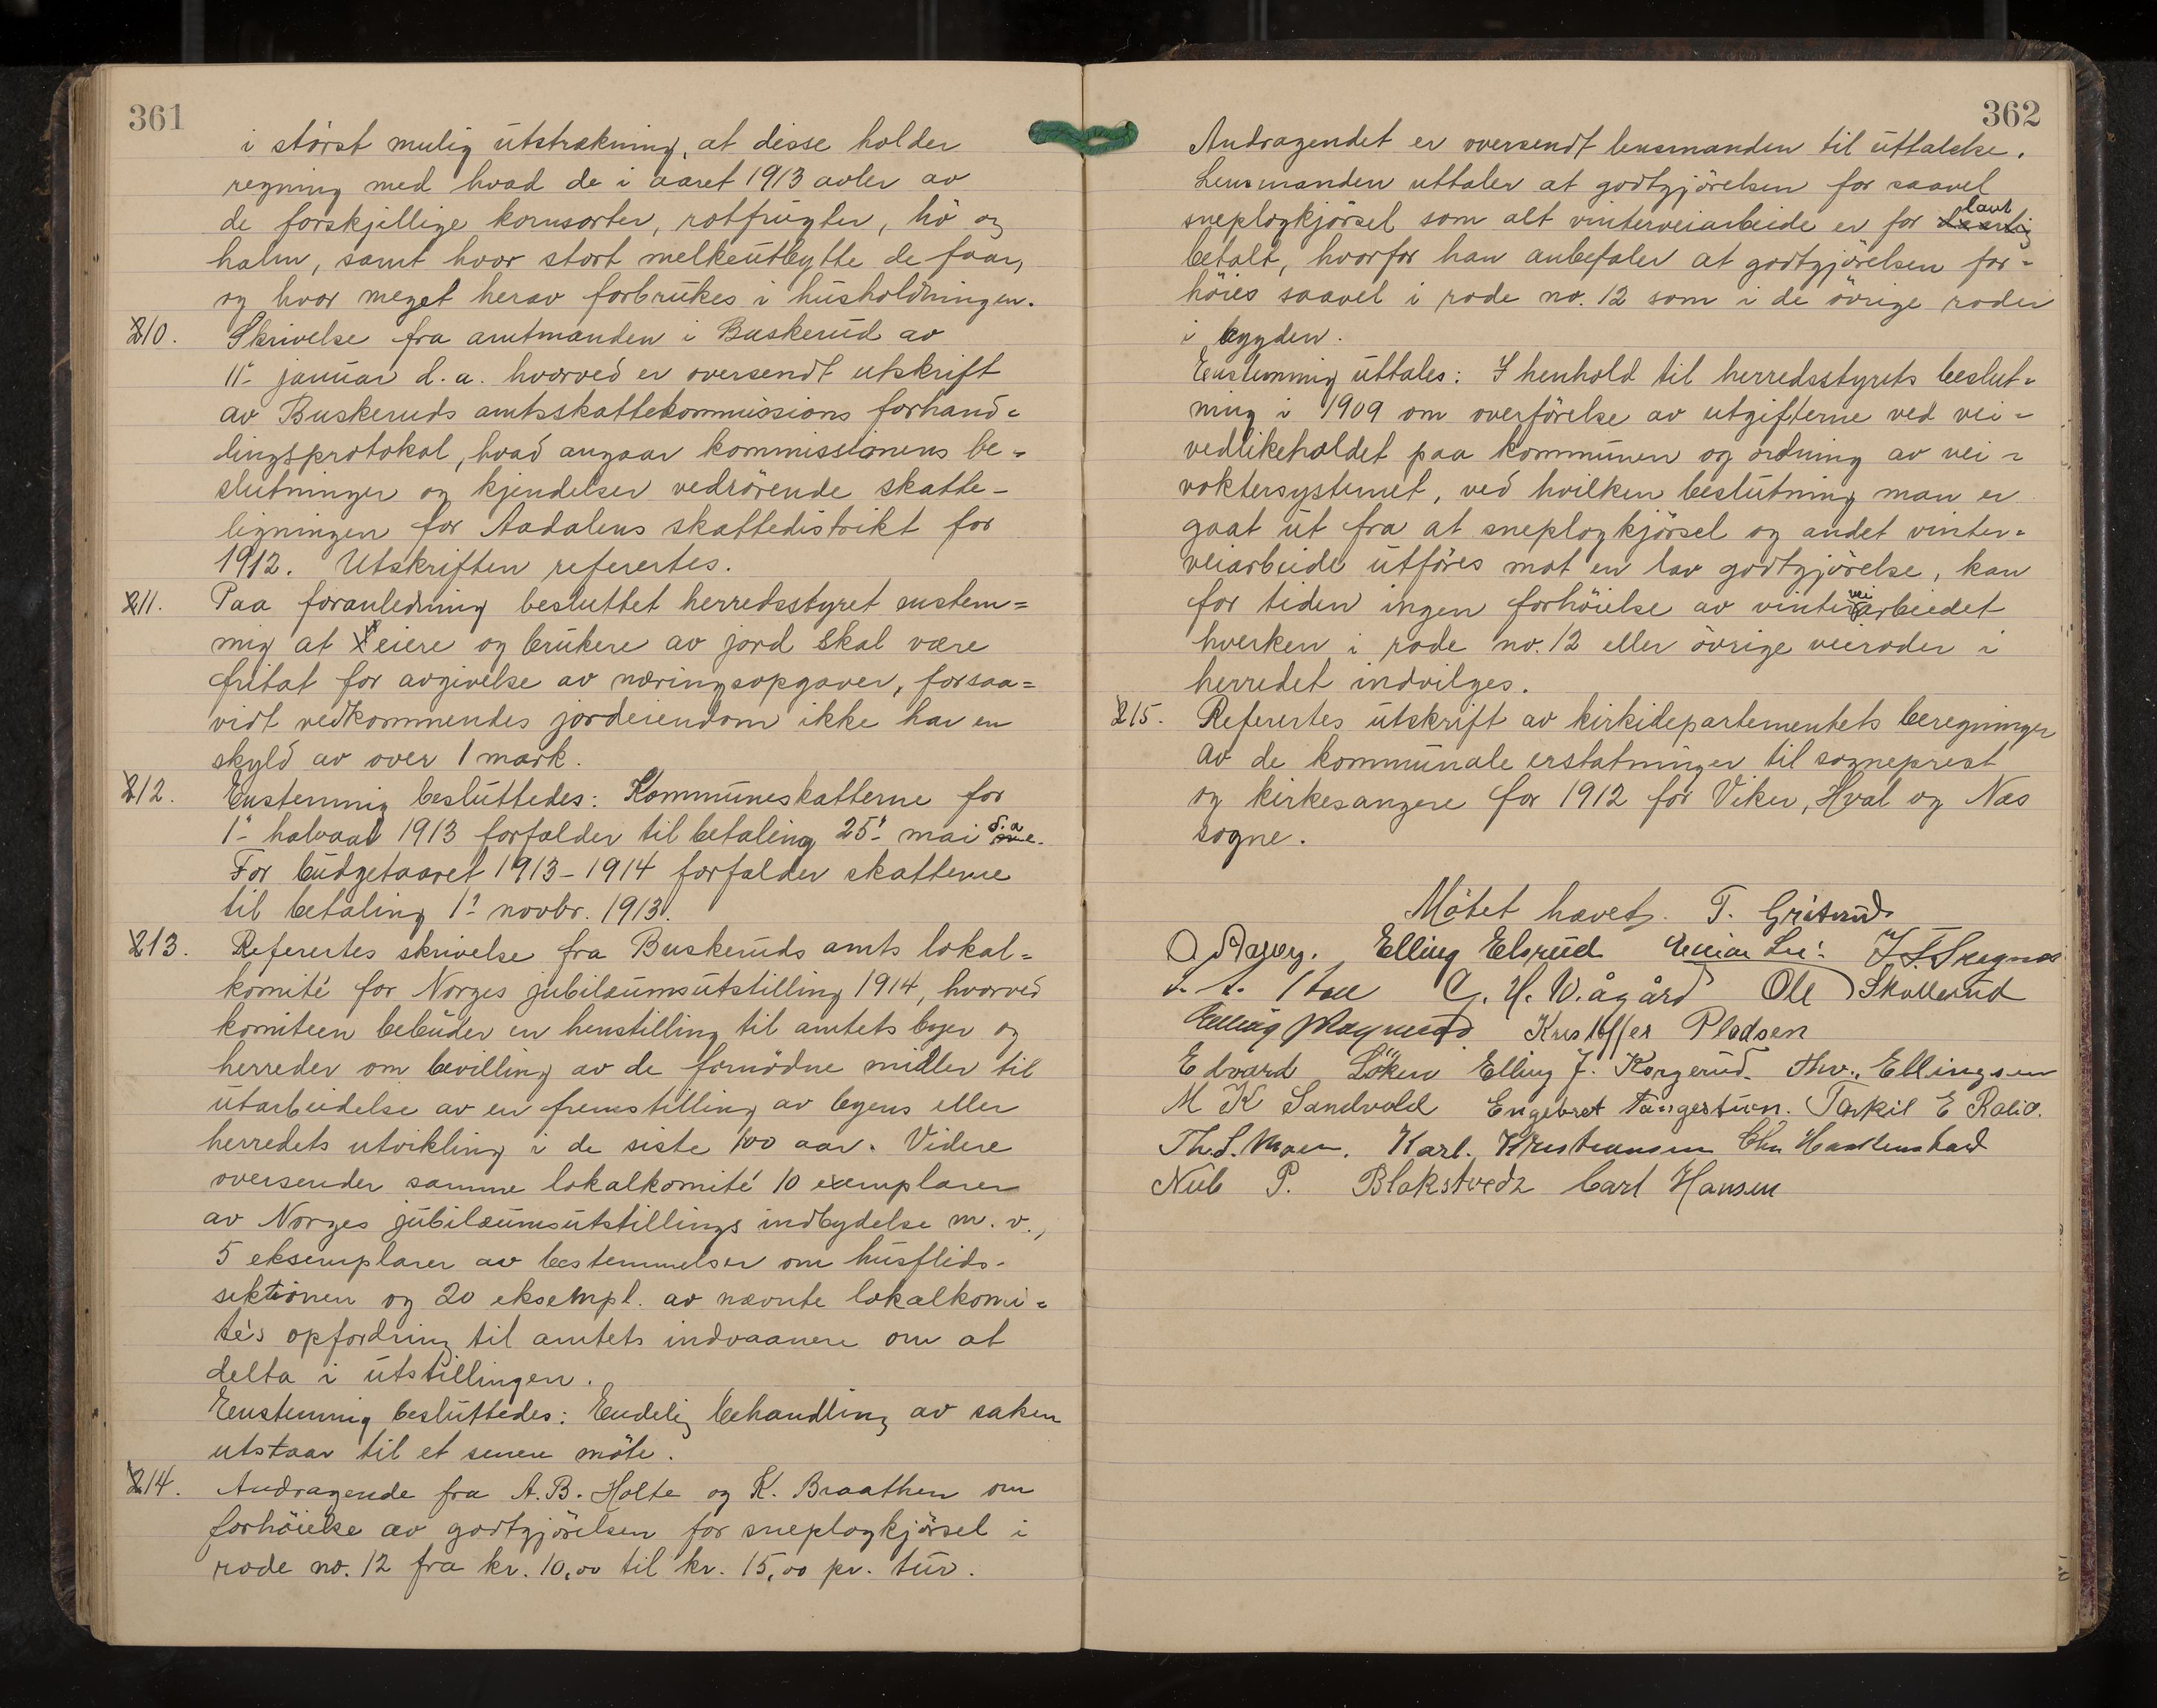 361
i störst mulig utstrækning, at disse holder
regning med hvad de i aaret 1913 avler av
de forskjellige kornsorter, rotfrugter, hö og
halm, samt hvor stort melkeutbytte de faar,
og hvor meget herav forbrukes i husholdningen.
210. Skrivelse fra amtmanden i Buskerud av
11te januar d.a. hvorved er oversendt utskrift
av Buskeruds amtsskattekommissions forhand=
lingsprotokol, hvad angaar kommissionens be=
slutninger og kjendelser vedrörende skatte-
ligningen for Aadalens skattedistrikt for
1912. Utskriften refertes.
211. Paa foranledning besluttet herredsstyret enstem=
mig at eiere og brukere av jord skal være
fritat for avgivelse av næringsopgaver, forsaa=
vidt vedkommendes jordeiendom ikke har en
skyld av over 1 mark.
212. Enstemmig besluttedes: Kommuneskatterne for
1ste halvaar 1913 forfalder til betaling 25de mai d.a.
For budgetaaret 1913-1914 forfalder skatterne
til betaling 1ste novbr. 1913.
213. Refertes skrivelse fra Buskeruds amts lokal=
komité for Norges jubilæumsutstilling 1914, hvorved
komiteen bebuder en henstilling til amtets byer og
herreder om bevilling av de fornödne midler til
utarbeidelse av en fremstilling av byens eller
herredets utvikling i de siste 100 aar. Videre
oversender samme lokalkomité 10 exemplarer
av Norges jubilæumsutstillings indbydelse m.v.,
5 eksemplarer av bestemmelser om husflids-
sektionen og 20 eksempl. av nævnte lokalkomi=
té's opfordring til amtets indvaanere om at
delta i utstillingen.
Eenstemmig besluttedes: Endelig behandling av saken
utstaar til et senere möte.
214. Andragende fra A.B. Holte og K. Braathen om
forhöielse av godtgjörelsen for sneplogkjörsel i
rode no. 12 fra kr. 10,00 til kr. 15,00 pr. tur.
362
Andragendet er oversendt lensmanden til uttalelse.
Lensmanden uttaler at godtgjörelsen for saavel
sneplogkjörsel som alt vinterveiarbeide er for lavt
betalt, hvorfor han anbefaler at godtgjörelsen for=
höies saavel i rode no. 12 som i de övrige roder
i bygden.
Enstemmig uttales: I henhold til herredsstyrets beslut=
ning i 1909 om overförelse av utgifterne ved vei=
vedlikeholdet paa kommunen og ordning av vei=
voktersystemet, ved hvilken beslutning man er
gaat ut fra at sneplogkjörsel og andet vinter=
veiarbeide utföres mot en lav godtgjörelse, kan
for tiden ingen forhöielse av vinterveiarbeidet
hverken i rode no. 12 eller övrige veiroder i
herredet indvilges.
215. Refertes utskrift av kirkedepartementets beregninger
av de kommunale erstatninger til sogneprest
og kirkesangere for 1912 for Viker, Hval og Næs
sogne.
Mötet hævet. T. Gritsrud
Elling Elsrud
C. H. Wågård Ole Skollerud
Elling Kristoffer Plodsen
Edvard Löken Elling J. Korgerud. Thv. Ellingsen
M K Sandvold Engebret Tangestuen. Torkil E
Th. S. Moen. Karl. Kristiansen
Nils P. Blakstvedt Carl Hansen